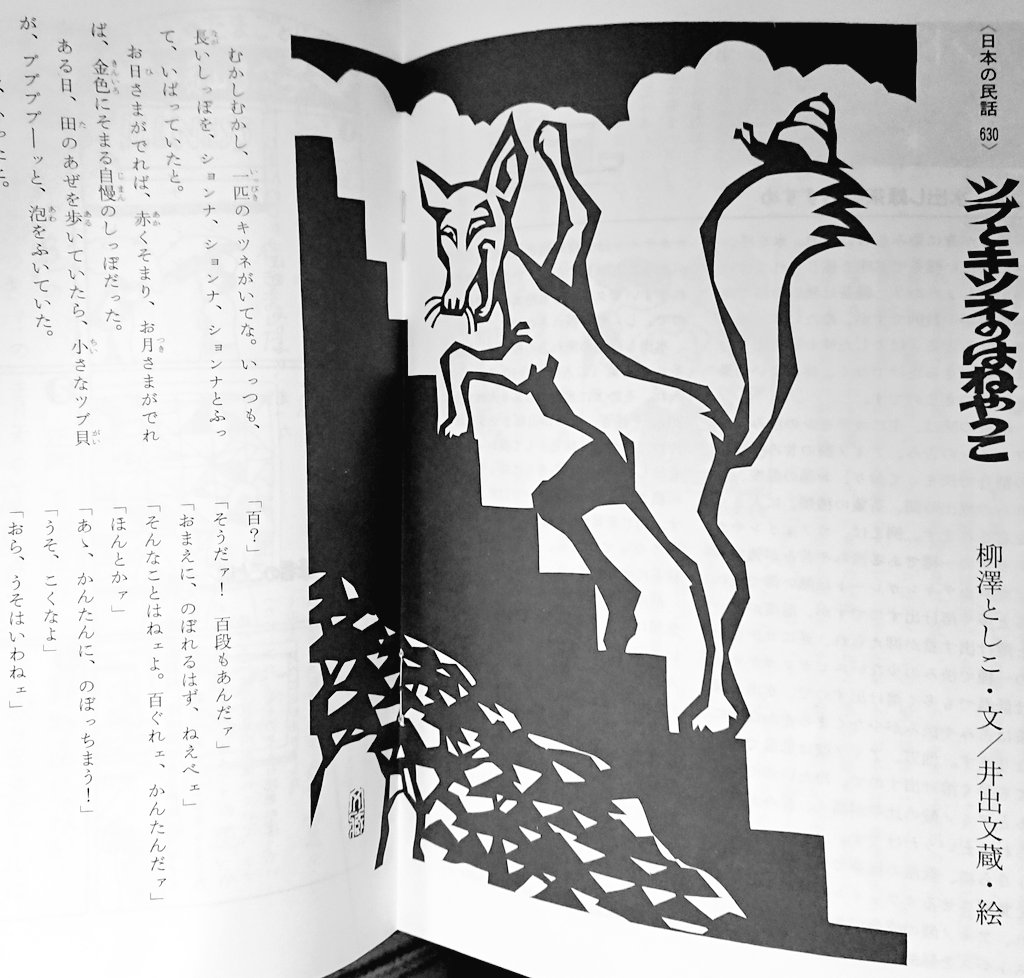 〈日本の民話 630〉
ツブとキツネのはねやっこ
柳澤としこ・文／井出文蔵・絵
むかしむかし、一匹のキツネがいてな。いっつも、
長いしっぽを、ションナ、ションナ、ションナとふっ
て、いばっていたと。
お日さまがでれば、赤くそまり、お月さまがでれ
ば、金色にそまる自慢のしっぽだった。
ある日、田のあぜを歩いていたら、小さなツブ貝
が、プププーッと、泡をふいていた。
「百？」
「そうだァ！　百段もあんだァ」
「おまえに、のぼれるはず、ねえべェ」
「そんなことはねェよ。百ぐれェ、かんたんだァ」
「ほんとかァ」
「あゝ、かんたんに、のぼっちまう！」
「うそ、こくなよ」
「おら、うそはいわねェ」